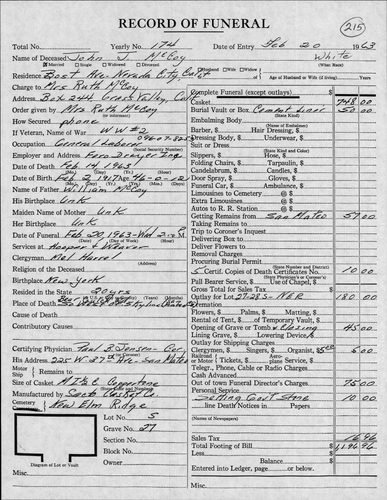 RECORD OF FUNERAL
215
Total No. Yearly No. 174 Date of Entry Feb 20 1963
Name of Deceased John J. McCoy White
Married Single Widowed Divorced Husband Wife Widow (What Race)
Residence Bost Ave. Nevada City Calif Age of Husband or Wife (if living)
Charge to Mrs Ruth McCoy Complete Funeral (except outlays) $
Address Box 244 Grass Valley, Casket 748 00
Order given by Mrs Ruth McCoy Burial Vault or Box Cement Liner 50 00
(or informant) (State Kind)
How Secured phone Embalming Body,
(Name of Embalmer)
If Veteran, of War WW #2 Barber, Hair Dressing, $
Dressing Body, Underwear, $
Occupation General Laborer Suit or Dress
(Social Security Number) (State Kind and Color)
Employer and Address Slippers, Hose, $
Folding Chairs, Tarpaulin, $
Date of Death Feb 14, 1963 Candelabrum, Candles, $
Date of Birth Feb 2, 1917 Age 46-0-12 Door Spray, Gloves, $
Name of Father William McCoy Funeral Car, Ambulance, $
Limousines to Cemetery @ $
His Birthplace Unk Extra Limousines @ $
Autos to R. R. Station @ $
Maiden Name of Mother Unk Getting Remains from San Mateo 57 00
Her Birthplace Unk Taking Remains to
Trip to Coroner's Inquest
Date of Funeral Feb 20, 1963 Wed 2:00 P Delivering Box to
Services at Hooper & Weaver Deliver Flowers to
Clergyman Mel Harrel Removal Charges
(Address) Procuring Burial Permit
Religion of the Deceased 5 Certif. Copies of Death Certificates No. 10 00
Birthplace New York Pall Bearer Service, Use of Chapel, $
Resided in the State 20 yrs Gross Total for Sales Tax $
Place of Death Outlay for Lot 27-28 S-NER 180 00
Cause of Death Flowers, $ Palms, $ Matting, $
Rental of Tent, $ of Temporary Vault, $
Contributory Causes Opening of Grave or Tomb & Closing 45 00
Lining Grave, $ Lowering Device, $
Certifying Physician Paul B. Jensen - Cor. Clergymen, $ Singers, $ Organist, $5.00 5 00
His Address 225 W 37th Ave. San Mateo Tickets, $ Aero Service, $
Motor Ship Remains to Telegr., Phone, Cable or Radio Charges
Cash Advanced
Size of Casket Coppertone Out of town Funeral Director's Charges 75 00
(State Kind and Number) Personal Service
Manufactured by Santa Casket Co. Setting Govt Stone 10 00
Cemetery New Elm Ridge line Death Notices in Papers
Lot No. S (Names of Newspapers)
Grave No. 27
Section No. Sales Tax 16 96
Block No. Total Footing of Bill $1,196 96
Owner Less $
Balance $
Diagram of Lot or Vault Entered into Ledger, page or below.